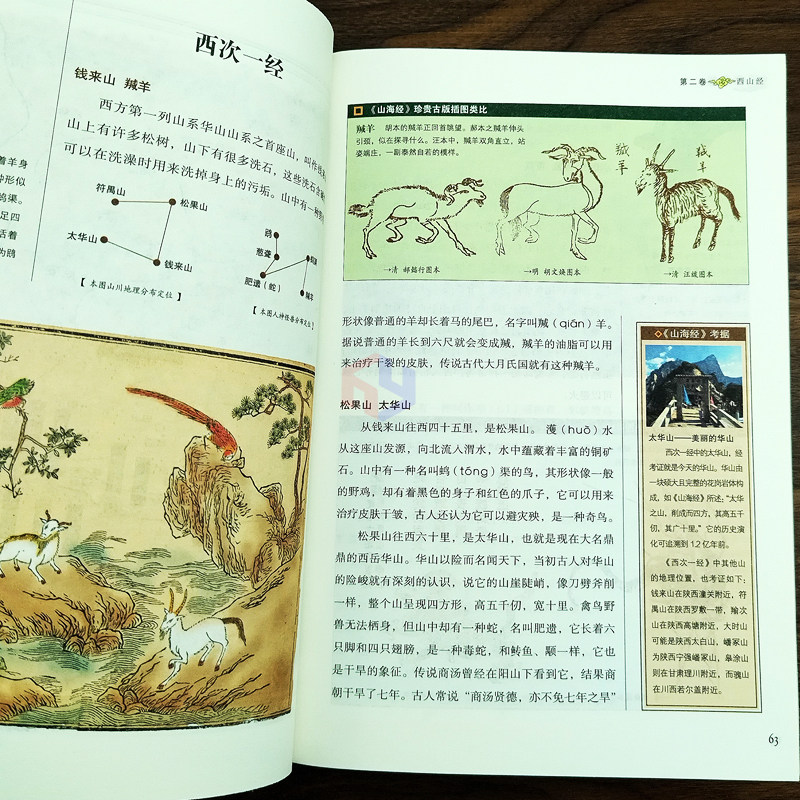 西次一经
钱来山 羬羊
西方第一列山系华山山系之首座山，叫作钱来
山上有许多松树，山下有很多洗石，这些洗石
可以在洗澡时用来洗掉身上的污垢。山中有一种
着羊身
种形似
鸪渠。
足四
活着
为鸱
符禺山
松果山
太华山
钱来山
【本图山川地理分布定位】
鸱
葱聋
肥遗（蛇）
羬羊
【本图人神怪兽分布定位】
第二卷 西山经
《山海经》珍贵古版插图类比
羬羊 胡本的羬羊正回首眺望。郝本之羬羊伸头
引颈，似在探寻什么。汪本中，羬羊双角直立，站
姿端庄，一副泰然自若的模样。
羬羊
羬羊
→清 郝懿行图本
→明 胡文焕图本
→清 汪绂图本
形状像普通的羊却长着马的尾巴，名字叫羬（qián）羊。
据说普通的羊长到六尺就会变成羬，羬羊的油脂可以用
来治疗干裂的皮肤，传说古代大月氏国就有这种羬羊。
松果山 太华山
从钱来山往西四十五里，是松果山。濩（huò）水
从这座山发源，向北流入渭水，水中蕴藏着丰富的铜矿
石。山中有一种名叫䳋（tóng）渠的鸟，其形状像一般
的野鸡，却有着黑色的身子和红色的爪子，它可以用来
治疗皮肤干皱，古人还认为它可以避灾殃，是一种奇鸟。
松果山往西六十里，是太华山，也就是现在大名鼎
鼎的西岳华山。华山以险而名闻天下，当初古人对华山
的险峻就有深刻的认识，说它的山崖陡峭，像刀劈斧削
一样，整个山呈现四方形，高五千仞，宽十里。禽鸟野
兽无法栖身，但山中却有一种蛇，名叫肥遗，它长着六
只脚和四只翅膀，是一种毒蛇，和鲑鱼、颙一样，它也
是干旱的象征。传说商汤曾经在阳山下看到它，结果商
朝干旱了七年。古人常说“商汤贤德，亦不免七年之旱”
《山海经》考据
太华山——美丽的华山
西次一经中的太华山，经
考证就是今天的华山。华山由
一块硕大且完整的花岗岩体构
成，如《山海经》所述：“太华
之山，削成而四方，其高五千
仞，其广十里。”它的历史演
化可追溯到1.2亿年前。
《西次一经》中其他山
的地理位置，也考证如下：
钱来山在陕西潼关附近，符
禺山在陕西罗敷一带，输次
山在陕西高塘附近，大时山
可能是陕西太白山，嶓冢山
为陕西宁强嶓冢山，皋涂山
则在甘肃理川附近，而魄山
在川西若尔盖附近。
63